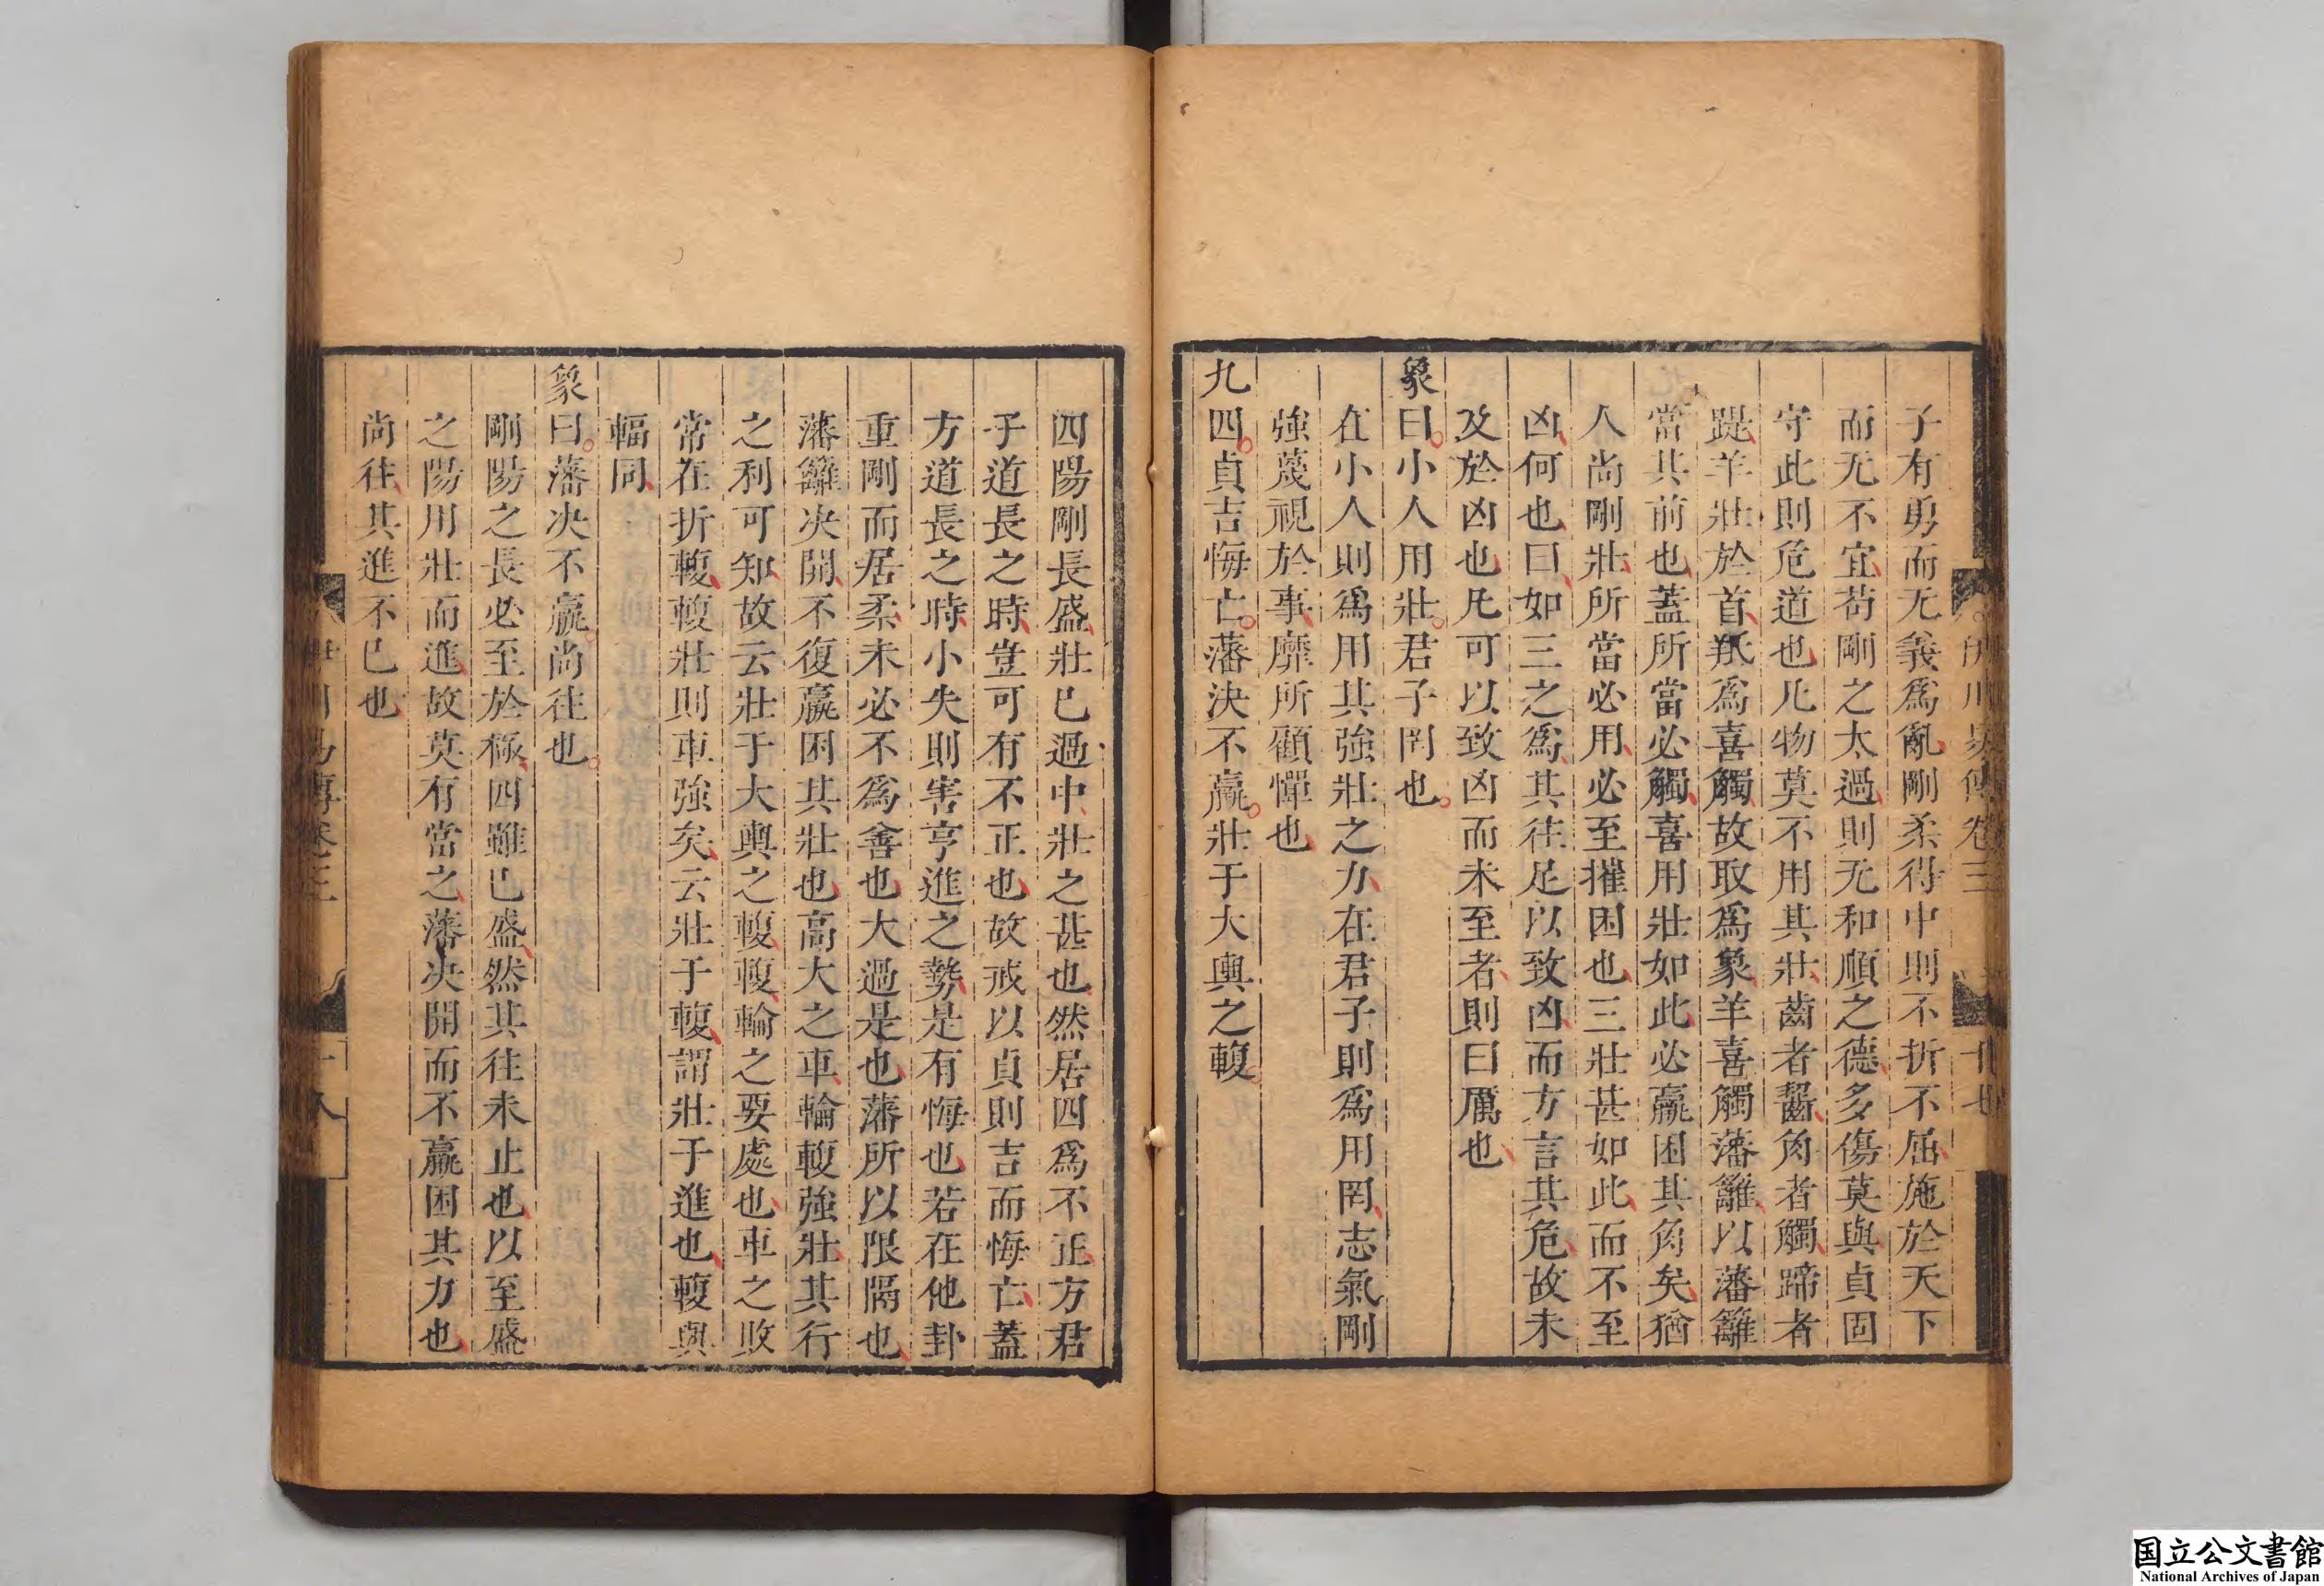 子有勇而无義爲亂剛柔得中則不折不屈施於天下
而无不宜苟剛之太過則无和順之德多傷莫與貞固
守此則危道也凡物莫不用其壯齒者齧角者觸蹄者
踶羊壯於首羝爲喜觸故取爲象羊喜觸藩籬以藩籬
當其前也蓋所當必觸喜用壯如此必羸困其角矣猶
人尚剛壯所當必用必至摧困也三壯甚如此而不至
凶何也曰如三之爲其往足以致凶而方言其危故未
及於凶也凡可以致凶而未至者則曰厲也
象曰小人用壯君子罔也
在小人則爲用其強壯之力在君子則爲用罔志氣剛
強蔑視於事靡所顧憚也
九四貞吉悔亡藩決不羸壯于大輿之輹
四陽剛長盛壯已過中壯之甚也然居四爲不正方君
子道長之時豈可有不正也故戒以貞則吉而悔亡蓋
方道長之時小失則害亨進之勢是有悔也若在他卦
重剛而居柔未必不爲善也大過是也藩所以限隔也
藩籬决開不復羸困其壯也高大之車輪輹強壯其行
之利可知故云壯于大輿之輹輹輪之要處也車之敗
常在折輹輹壯則車強矣云壯于輹謂壯于進也輹與
輻同
象曰藩决不羸尚往也
剛陽之長必至於極四雖已盛然其往未止也以至盛
之陽用壯而進故莫有當之藩决開而不羸困其力也
尚往其進不已也
伊川易傳卷三
十八
国立公文書館
National Archives of Japan